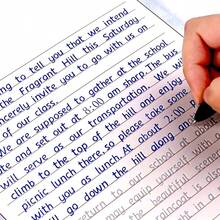 ing to tell you that we intend
the Fragrant Hill this Saturday
sincerely invite you to go with us on
of our class.
We are supposed to gather at the school
ate and set out at 8:00 am sharp. The bus
will serve as our transportation. We will
climb to the top of the hill and enjoy
picnic lunch there, so please take some
with you as lunch. At about 2:00 p
will go down the hill along an
return to our school at about
may equip yourself with
beautiful scen
raincoat is also